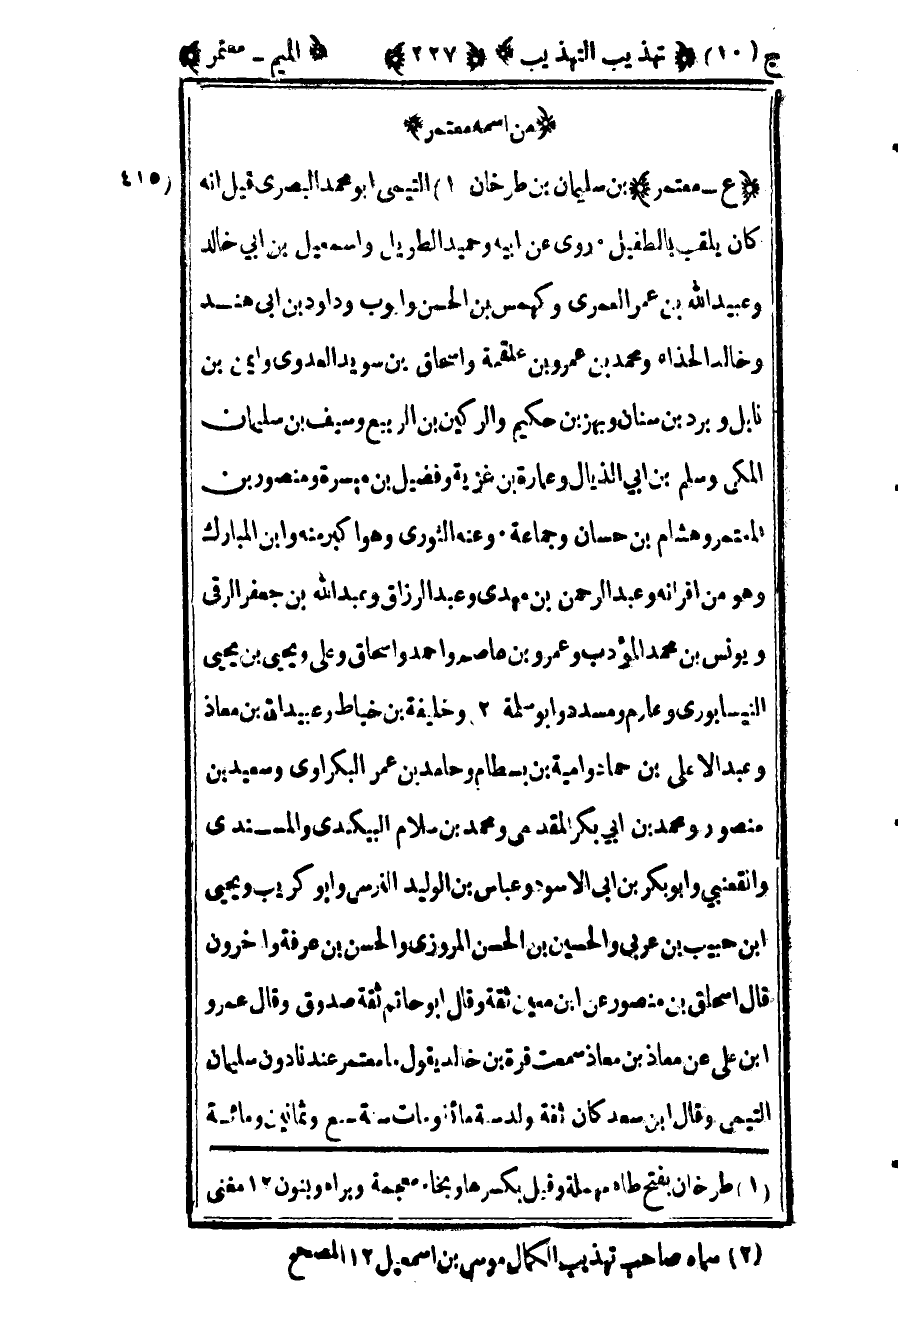 ج (١٠) ﴿ تهذيب التهذيب ﴾ ﴿ ٢٢٧ ﴾ ﴿ الميم ـ معتمر ﴾
﴿ من اسمه معتمر ﴾
﴿ ع ـ معتمر ﴾ بن سليمان بن طرخان (١) التيمى ابو محمد البصرى قيل انه (٤١٥
كان يلقب بالطفيل ٠ روى عن ابيه وحميد الطويل واسمعيل بن ابي خالد
وعبيد الله بن عمر العمرى وكهمس بن الحسن وايوب وداود بن ابى هنـد
وخالد الحذاء ومحمد بن عمرو بن علقمة واسحاق بن سويد العدوى وايمن بن
نابل وبرد بن سنان وبهز بن حكيم والركين بن الربيع وسيف بن سليمان
المكى وسلم بن ابي الذيال وعمارة بن غزية وفضيل بن ميسرة ومنصور بن
المعتمر وهشام بن حسان وجماعة ٠ وعنه الثورى وهو اكبر منه وابن المبارك
وهو من اقرانه وعبد الرحمن بن مهدى وعبد الرزاق وعبد الله بن جعفر الرقى
ويونس بن محمد المؤدب وعمرو بن عاصم واحمد واسحاق وعلى ويحيى بن يحيى
النيسابورى وعارم ومسدد وابو سلمة (٢) وخليفة بن خياط وعبيد الله بن معاذ
وعبد الاعلى بن حماد وامية بن بسطام وحامد بن عمر البكراوى وسعيد بن
منصور ومحمد بن ابي بكر المقدمى ومحمد بن سلام البيكندى والمسندى
والقعنبي وابو بكر بن ابى الاسود وعباس بن الوليد النرسى وابو كريب ويحيى
ابن حبيب بن عربي والحسين بن الحسن المروزى والحسن بن عرفة واخرون
قال اسحاق بن منصور عن ابن معين ثقة وقال ابو حاتم ثقة صدوق وقال عمرو
ابن على عن معاذ بن معاذ سمعت قرة بن خالد يقول ما معتمر عندنا دون سليمان
التيمى وقال ابن سعد كان ثقة ولد سنة مائة ومات سنة سبع وثمانين ومائـة
(١) طرخان بفتح طاء مهملة وقيل بكسرها وبخاء معجمة وبراء وبنون ١٢ مغنى
(٢) سماه صاحب تهذيب الكمال موسى بن اسمعيل ١٢ المصحح